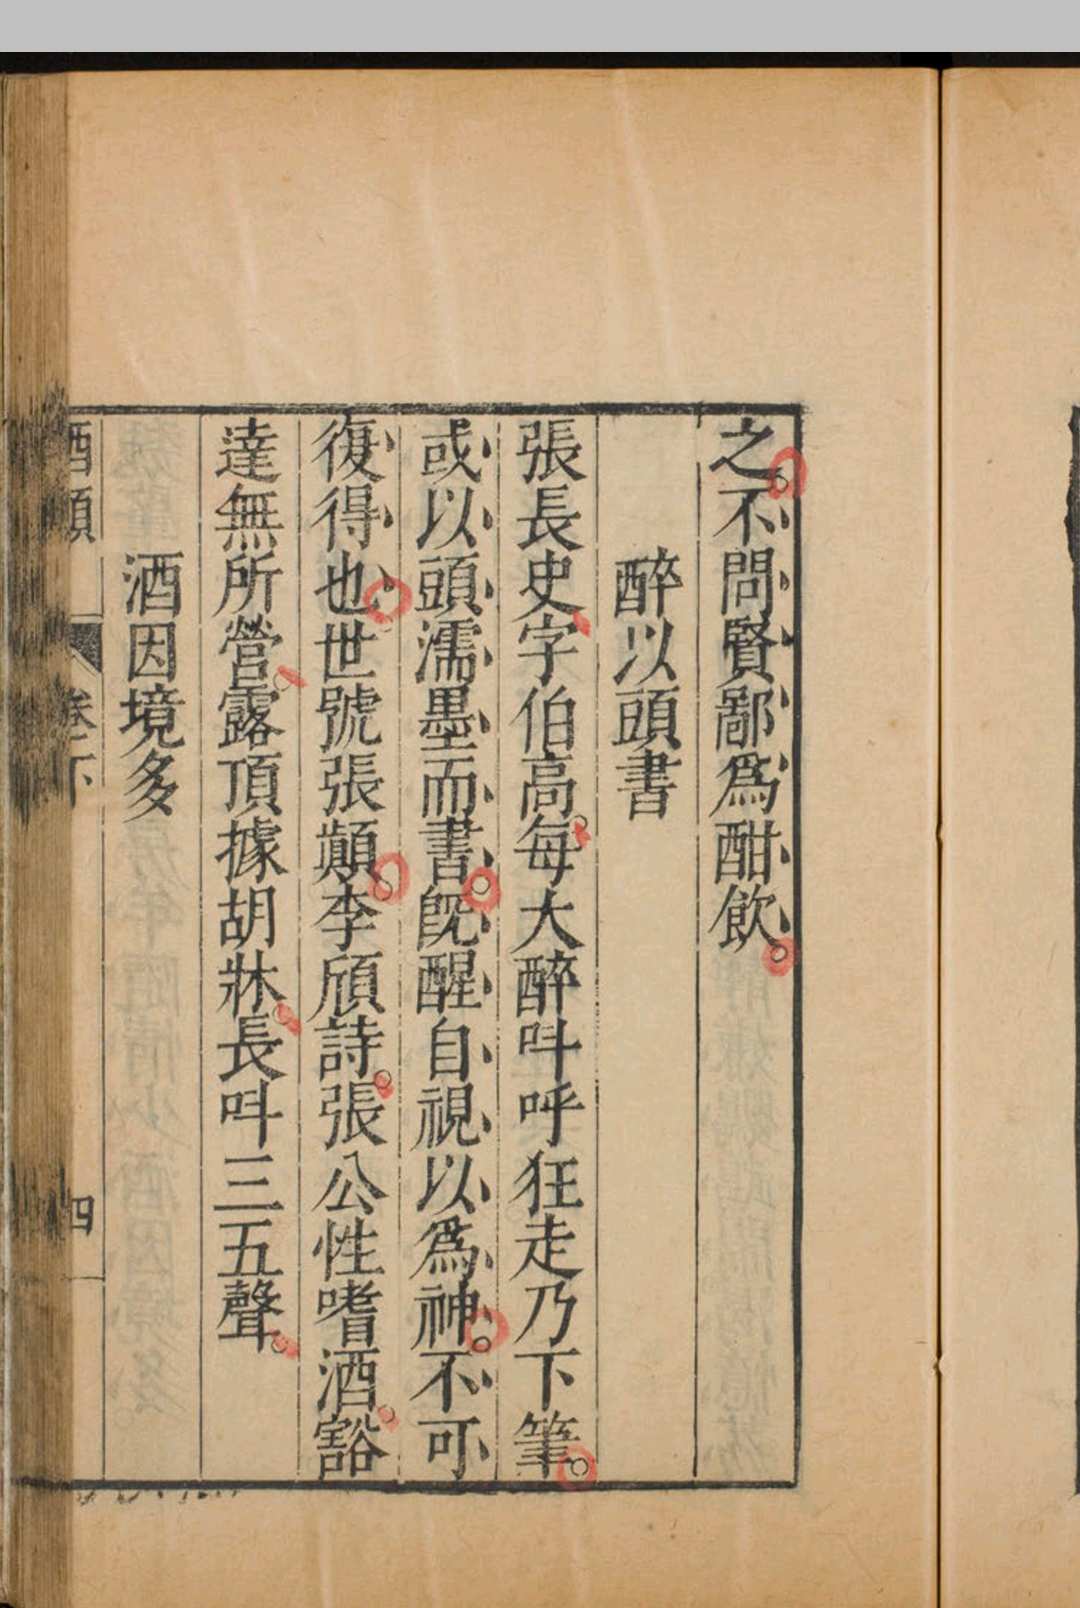 之不問賢鄙爲酣飲
醉以頭書
張長史字伯高每大醉呌呼狂走乃下筆
或以頭濡墨而書旣醒自視以爲神不可
復得也世號張顛李頎詩張公性嗜酒豁
達無所營露頂據胡牀長呌三五聲
酒因境多
酒顛 卷下 四